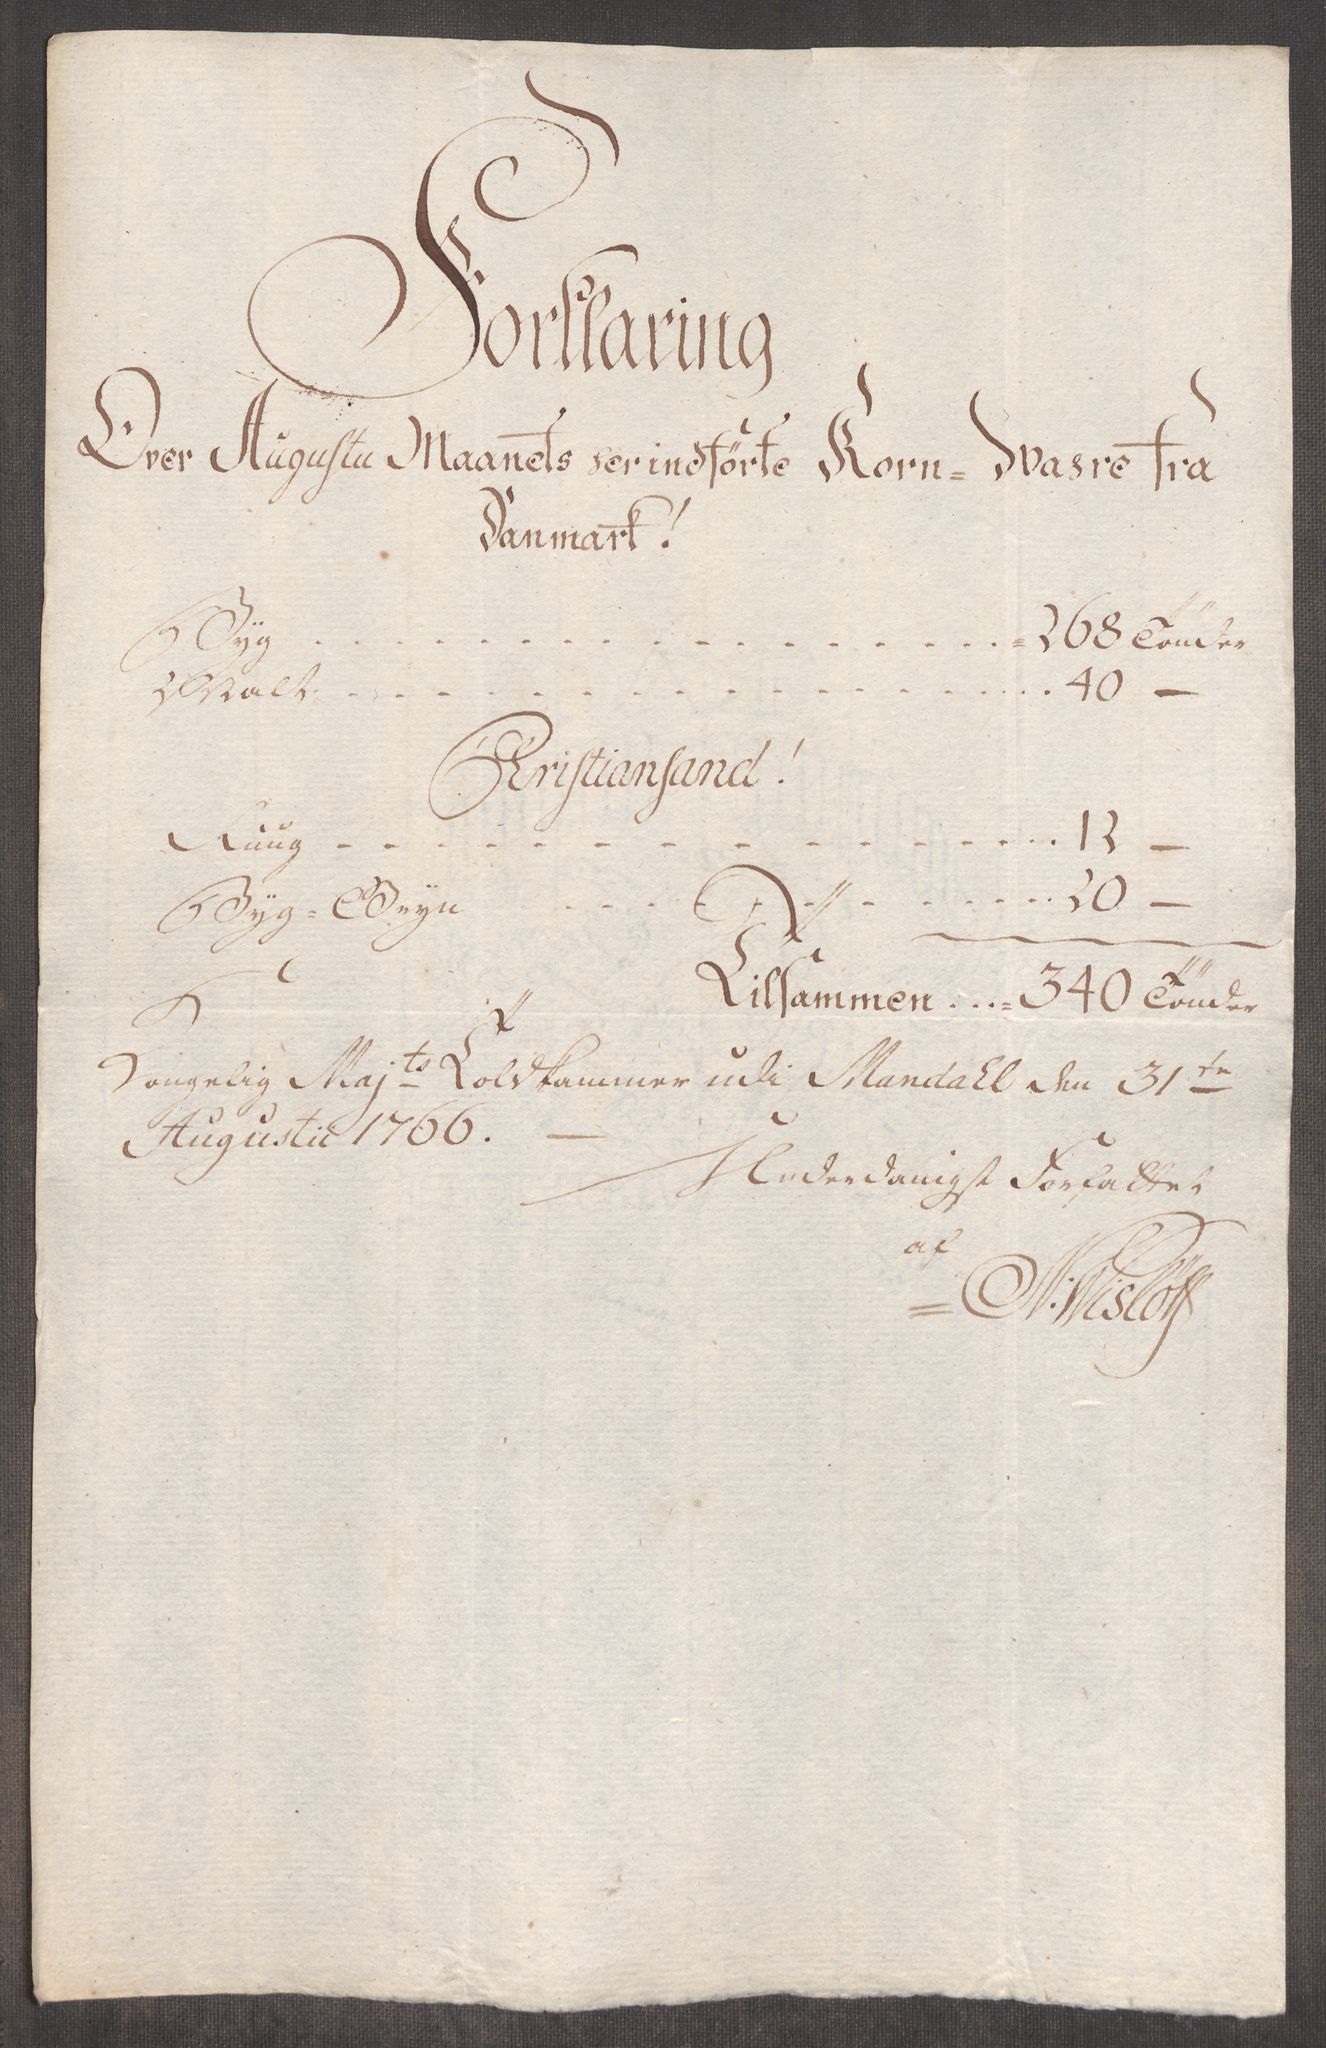 Forklaring
Over Augustii Maanets her indförte Korn= Wahre fra
Danmark!
Byg . . . . . . . . . . . . . . = 268 Tönder
Malt . . . . . . . . . . . . . . 40 —
Kristiansand!
Ruug - - - - - - - - - - - 12 —
Byg=Gryn - - - - - - - - 20 —
Tilsammen . . . = 340 Tönder
Kongelig Majts Toldkammer udi Mandahl den 31te
Augustii 1766. —
Underdanigst Forfattet
af
= N: Wislöff